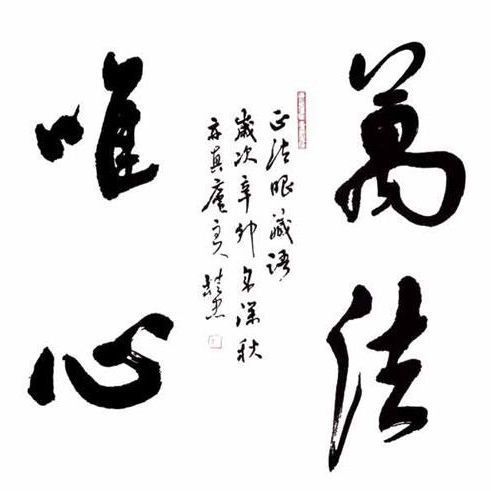 萬法
正法眼藏語
歲次辛卯年深秋
真庵主人
唯心